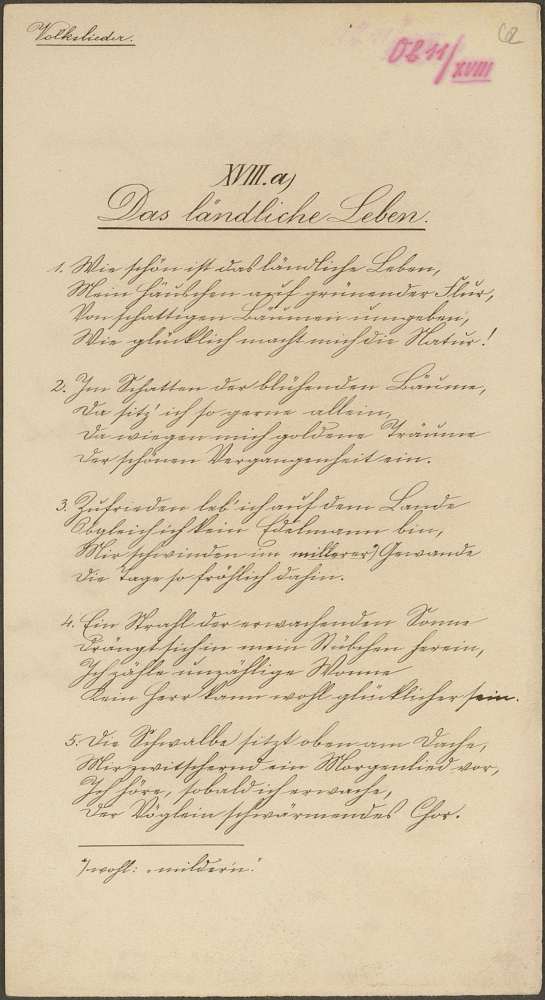 Volkslieder.
0211/XVIII
62
XVIII. a)
Das ländliche Leben.
1. Wie schön ist das ländliche Leben,
Mein Häubchen auf grünender Flur,
Von schattigen Bäumen umgeben,
Wie glücklich macht mich die Natur!
2. Im Schatten der blühenden Bäume,
Da sitz' ich so gerne allein,
Da wiegen mich goldene Träume
Der schönen Vergangenheit ein.
3. Zufrieden leb' ich auf dem Lande
Obgleich ich kein Edelmann bin,
Mir schwinden im millerer*) Gewande
Die Tage so fröhlich dahin.
4. Ein Strahl der erwachenden Sonne
Drängt sich in mein Stübchen herein,
Ich zähle unzählige Wonne
Kein Herr kann wohl glücklicher sein.
5. Die Schwalbe sitzt oben am Dache,
Mir zwitschernd ein Morgenlied vor,
Ich höre, sobald ich erwache,
Der Vöglein schwärmendes Chor.
*) wohl: „mildern."